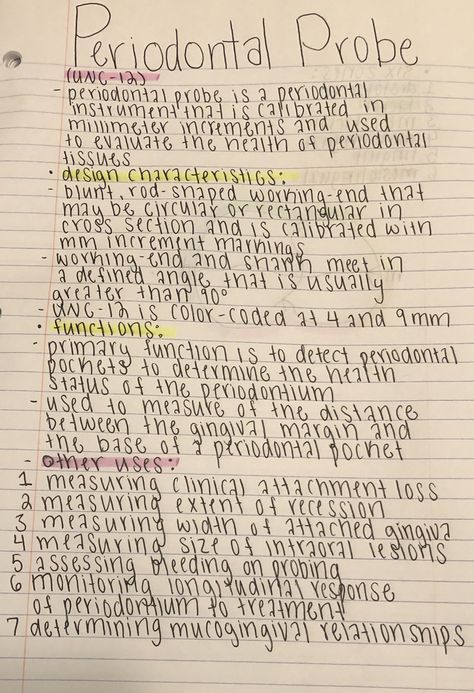 Periodontal Probe
(UNC-12)
- periodontal probe is a periodontal
instrument that is calibrated in
millimeter increments and used
to evaluate the health of periodontal
tissues
• design characteristics:
- blunt, rod-shaped working-end that
may be circular or rectangular in
cross section and is calibrated with
mm increment markings
- working-end and shank meet in
a defined angle that is usually
greater than 90°
- UNC-12 is color-coded at 4 and 9mm
• functions:
- primary function is to detect periodontal
pockets to determine the health
status of the periodontium
- used to measure of the distance
between the gingival margin and
the base of a periodontal pocket
- other uses:
1 measuring clinical attachment loss
2 measuring extent of recession
3 measuring width of attached gingiva
4 measuring size of intraoral lesions
5 assessing bleeding on probing
6 monitoring longitudinal response
of periodontium to treatment
7 determining mucogingival relationships